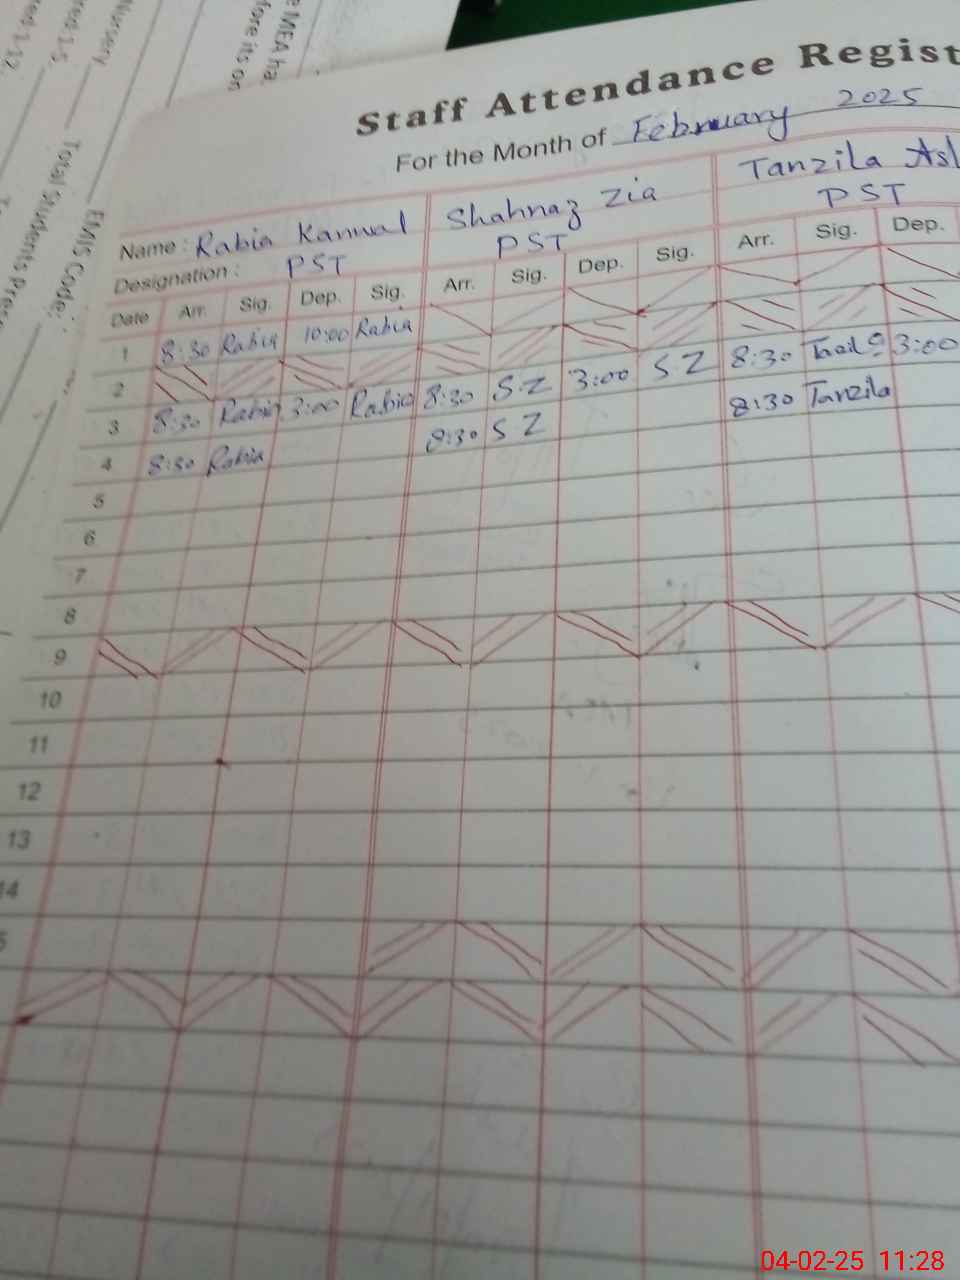 Staff Attendance Regist
For the Month of February 2025
Name : Rabia Kanwal Shahnaz Zia Tanzila Asl
Designation : PST PST PST
Date Arr. Sig. Dep. Sig. Arr. Sig. Dep. Sig. Arr. Sig. Dep.
1 8:30 Rabia 10:00 Rabia
2
3 8:30 Rabia 3:00 Rabia 8:30 S.Z 3:00 S Z 8:30 3:00
4 8:30 Rabia 8:30 S Z 8:30 Tanzila
5
6
7
8
9
10
11
12
13
14
5
Nursery
red:1-5
red:1-12
Total Students
EMIS Code:
e MEA ha
fore its
04-02-25 11:28